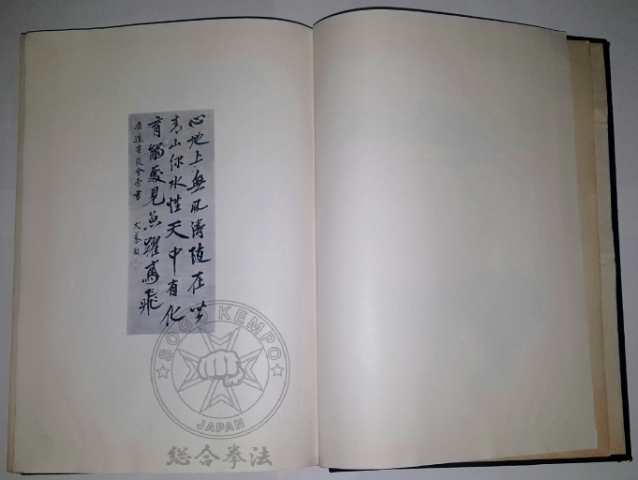 心地上無風濤随在皆
青山緑水性天中有化
育觸處見魚躍鳶飛
SOGO KEMPO
JAPAN
総合拳法